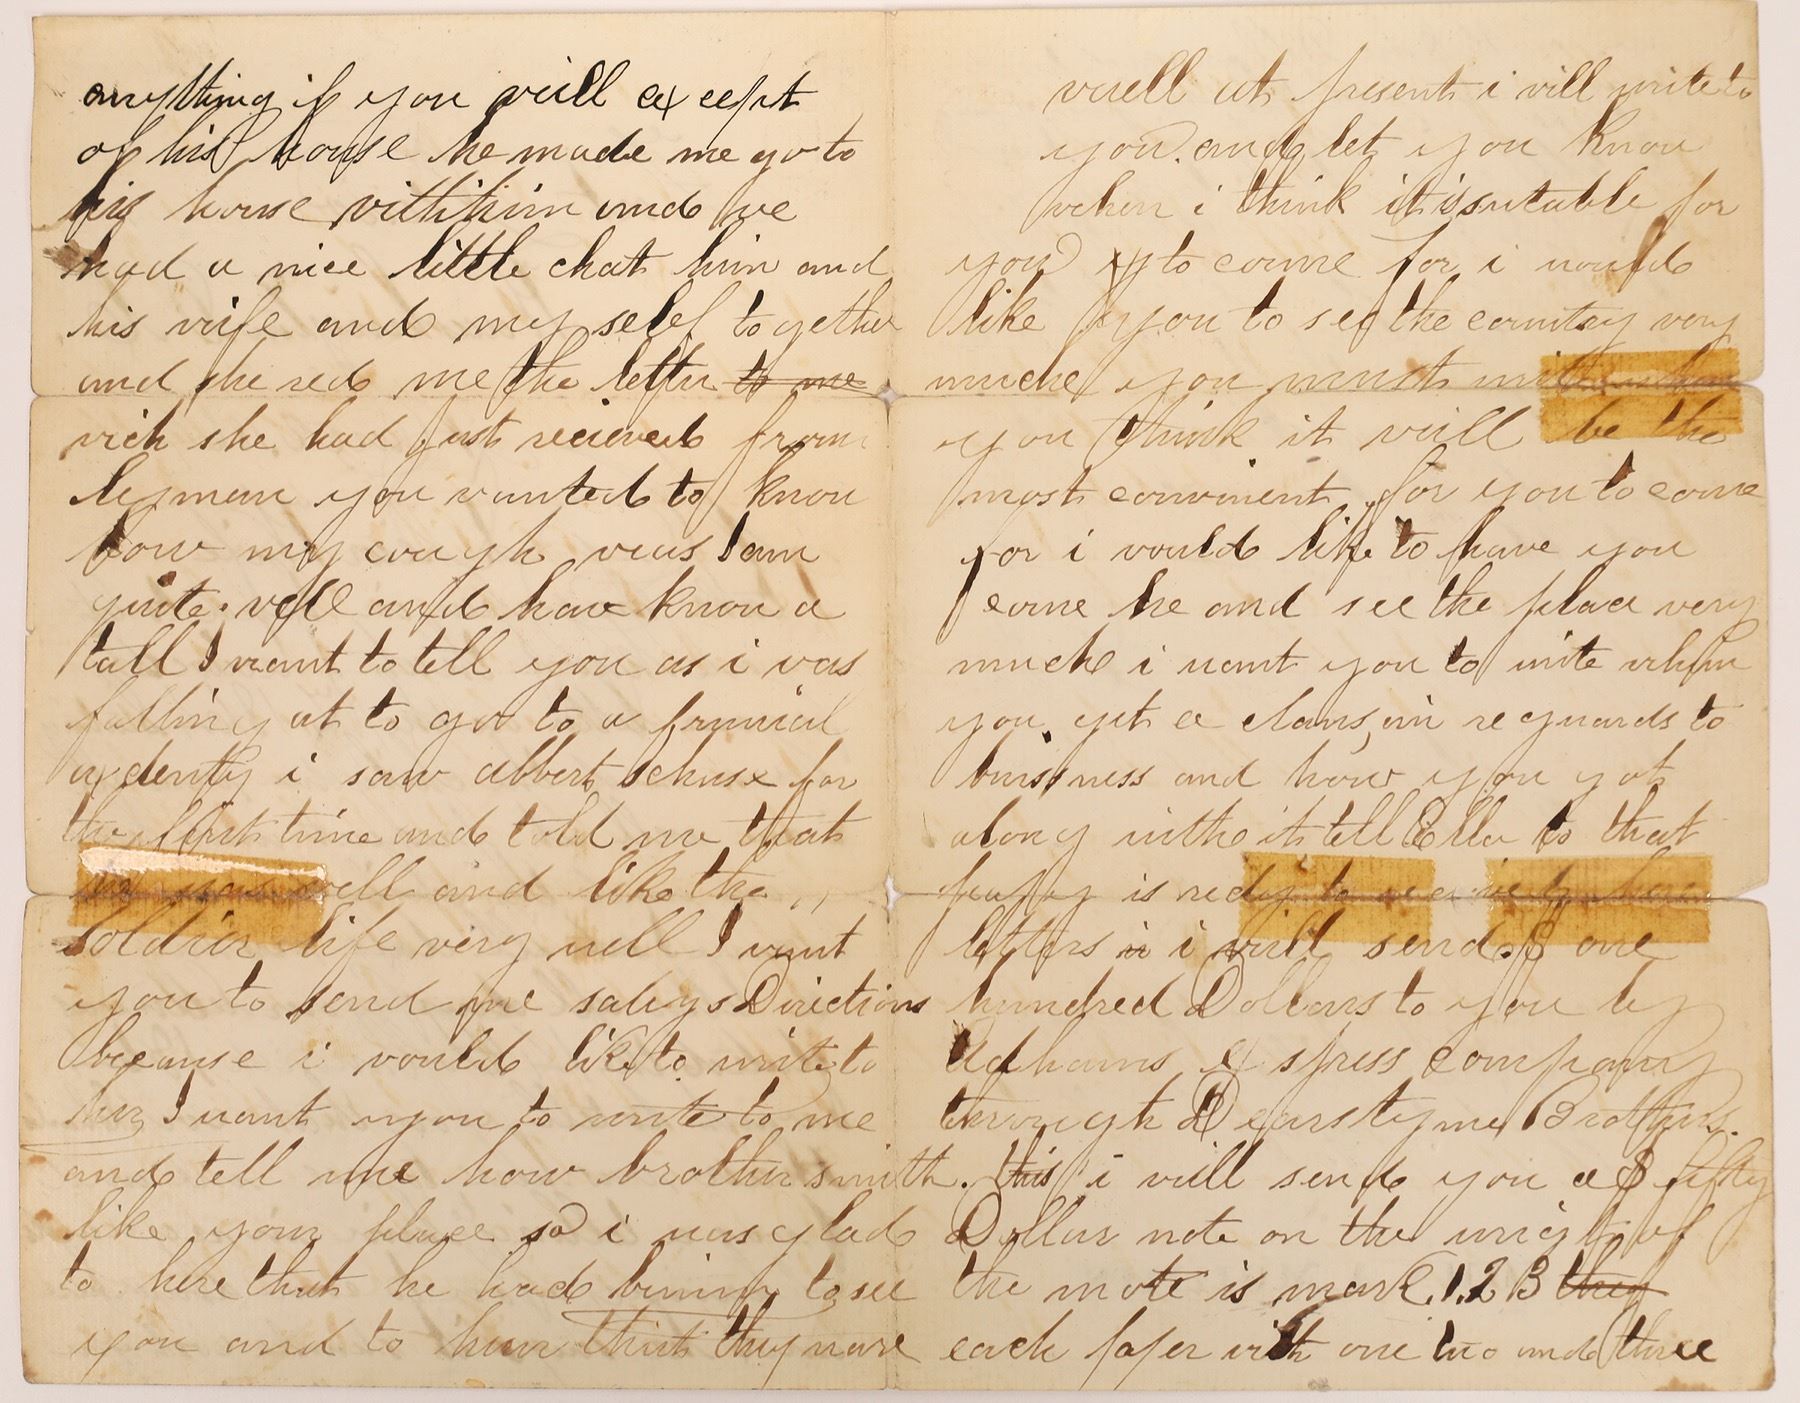 anything if you will except
of his house he made me go to
his house withhim and we
had a nice little chat him and
his wife and my self together
and she red me the letter to me
wich she had just recieved from
lyman you wanted to know
how my cough was I am
quite well and have know a
tall I want to tell you as i was
falling at to go to a
i saw albert for
the first time and told me that
he was well and like the
soldier life very well I want
you to send me salys Directions
because i would like to write to
her I want you to write to me
and tell me how brother smith
like your place so i was glad
to here that he had to see
you and to hear that they ware
well at present i will write to
you and let you know
when i think it is sutable for
you to come for i would
like you to see the country very
much you must write when
you think it will be the
most convinent for you to come
for i would like to have you
come he and see the place very
much i want you to write when
you get a in reguards to
bussness and how you got
along withe it tell Ella to that
is redy to
letters i will send $ one
hundred Dollars to you by
Adhams Express company
through Brothers.
this i will send you a $ fifty
Dollar note on the wright of
the note is mark 1.2 3 they
each paper with one two and three